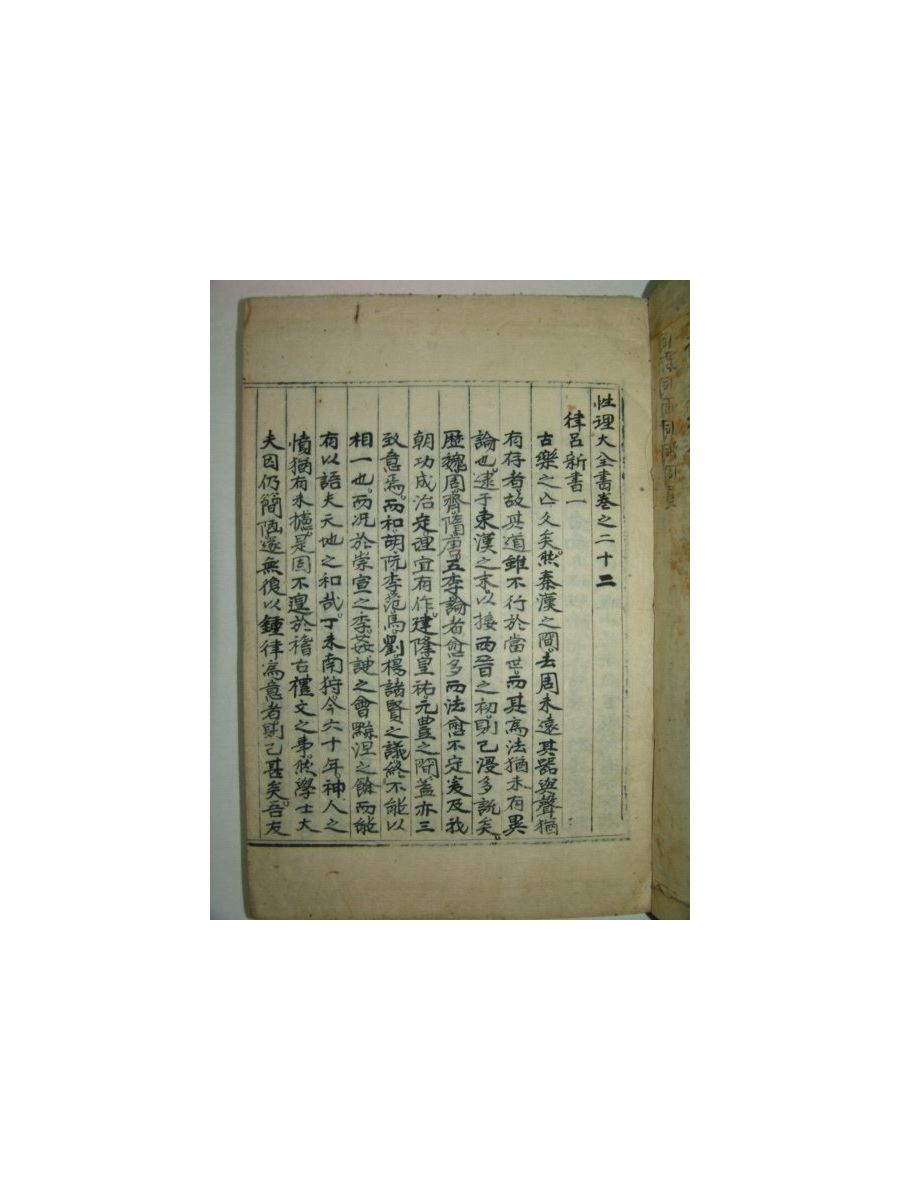 性理大全書巻之二十二
律呂新書一
古樂之亡久矣然秦漢之間去周未遠其器與聲猶
有存者故其道雖不行於當世而其為法猶未有異
論也逮于東漢之末以接西晉之初則已漫多說矣
歷魏周齊隋唐五季論者愈多而法愈不定爰及我
朝功成治定理宜有作建隆皇祐元豊之間盖亦三
致意焉而和胡阮李范馬劉楊諸賢之議終不能以
相一也而况於崇宣之季姦諛之會黥涅之餘而能
有以語夫天地之和哉丁未南狩今六十年神人之
憤猶有未攄是固不遑於稽古禮文之事然學士大
夫因仍簡陋遂無復以鍾律為意者則已甚矣吾友